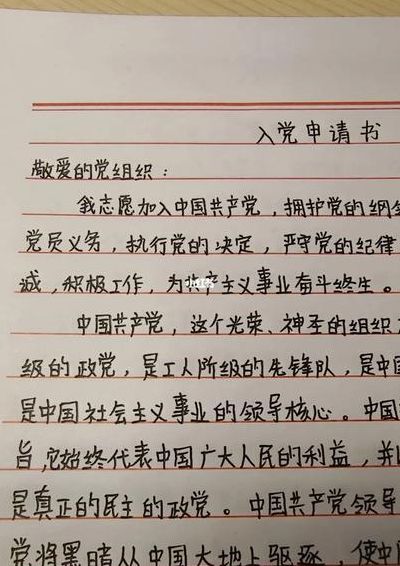 入党申请书
敬爱的党组织：
我志愿加入中国共产党，拥护党的纲
党员义务，执行党的决定，严守党的纪律
诚，积极工作，为共产主义事业奋斗终生。
中国共产党，这个光荣、神圣的组织
级的政党，是工人阶级的先锋队，是中
是中国社会主义事业的领导核心。中国
旨，它始终代表中国广大人民的利益，并
是真正的民主的政党。中国共产党领导
党将黑暗从中国大地上驱逐，使中